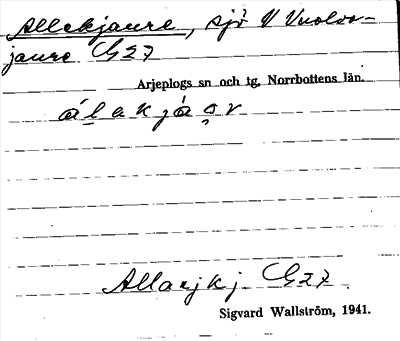 Allekjaure, sjö V Vuolvo-
jaure G27
Arjeplogs sn och tg, Norrbottens län.
álakjáₒr
Allarjkj. G27.
Sigvard Wallström, 1941.